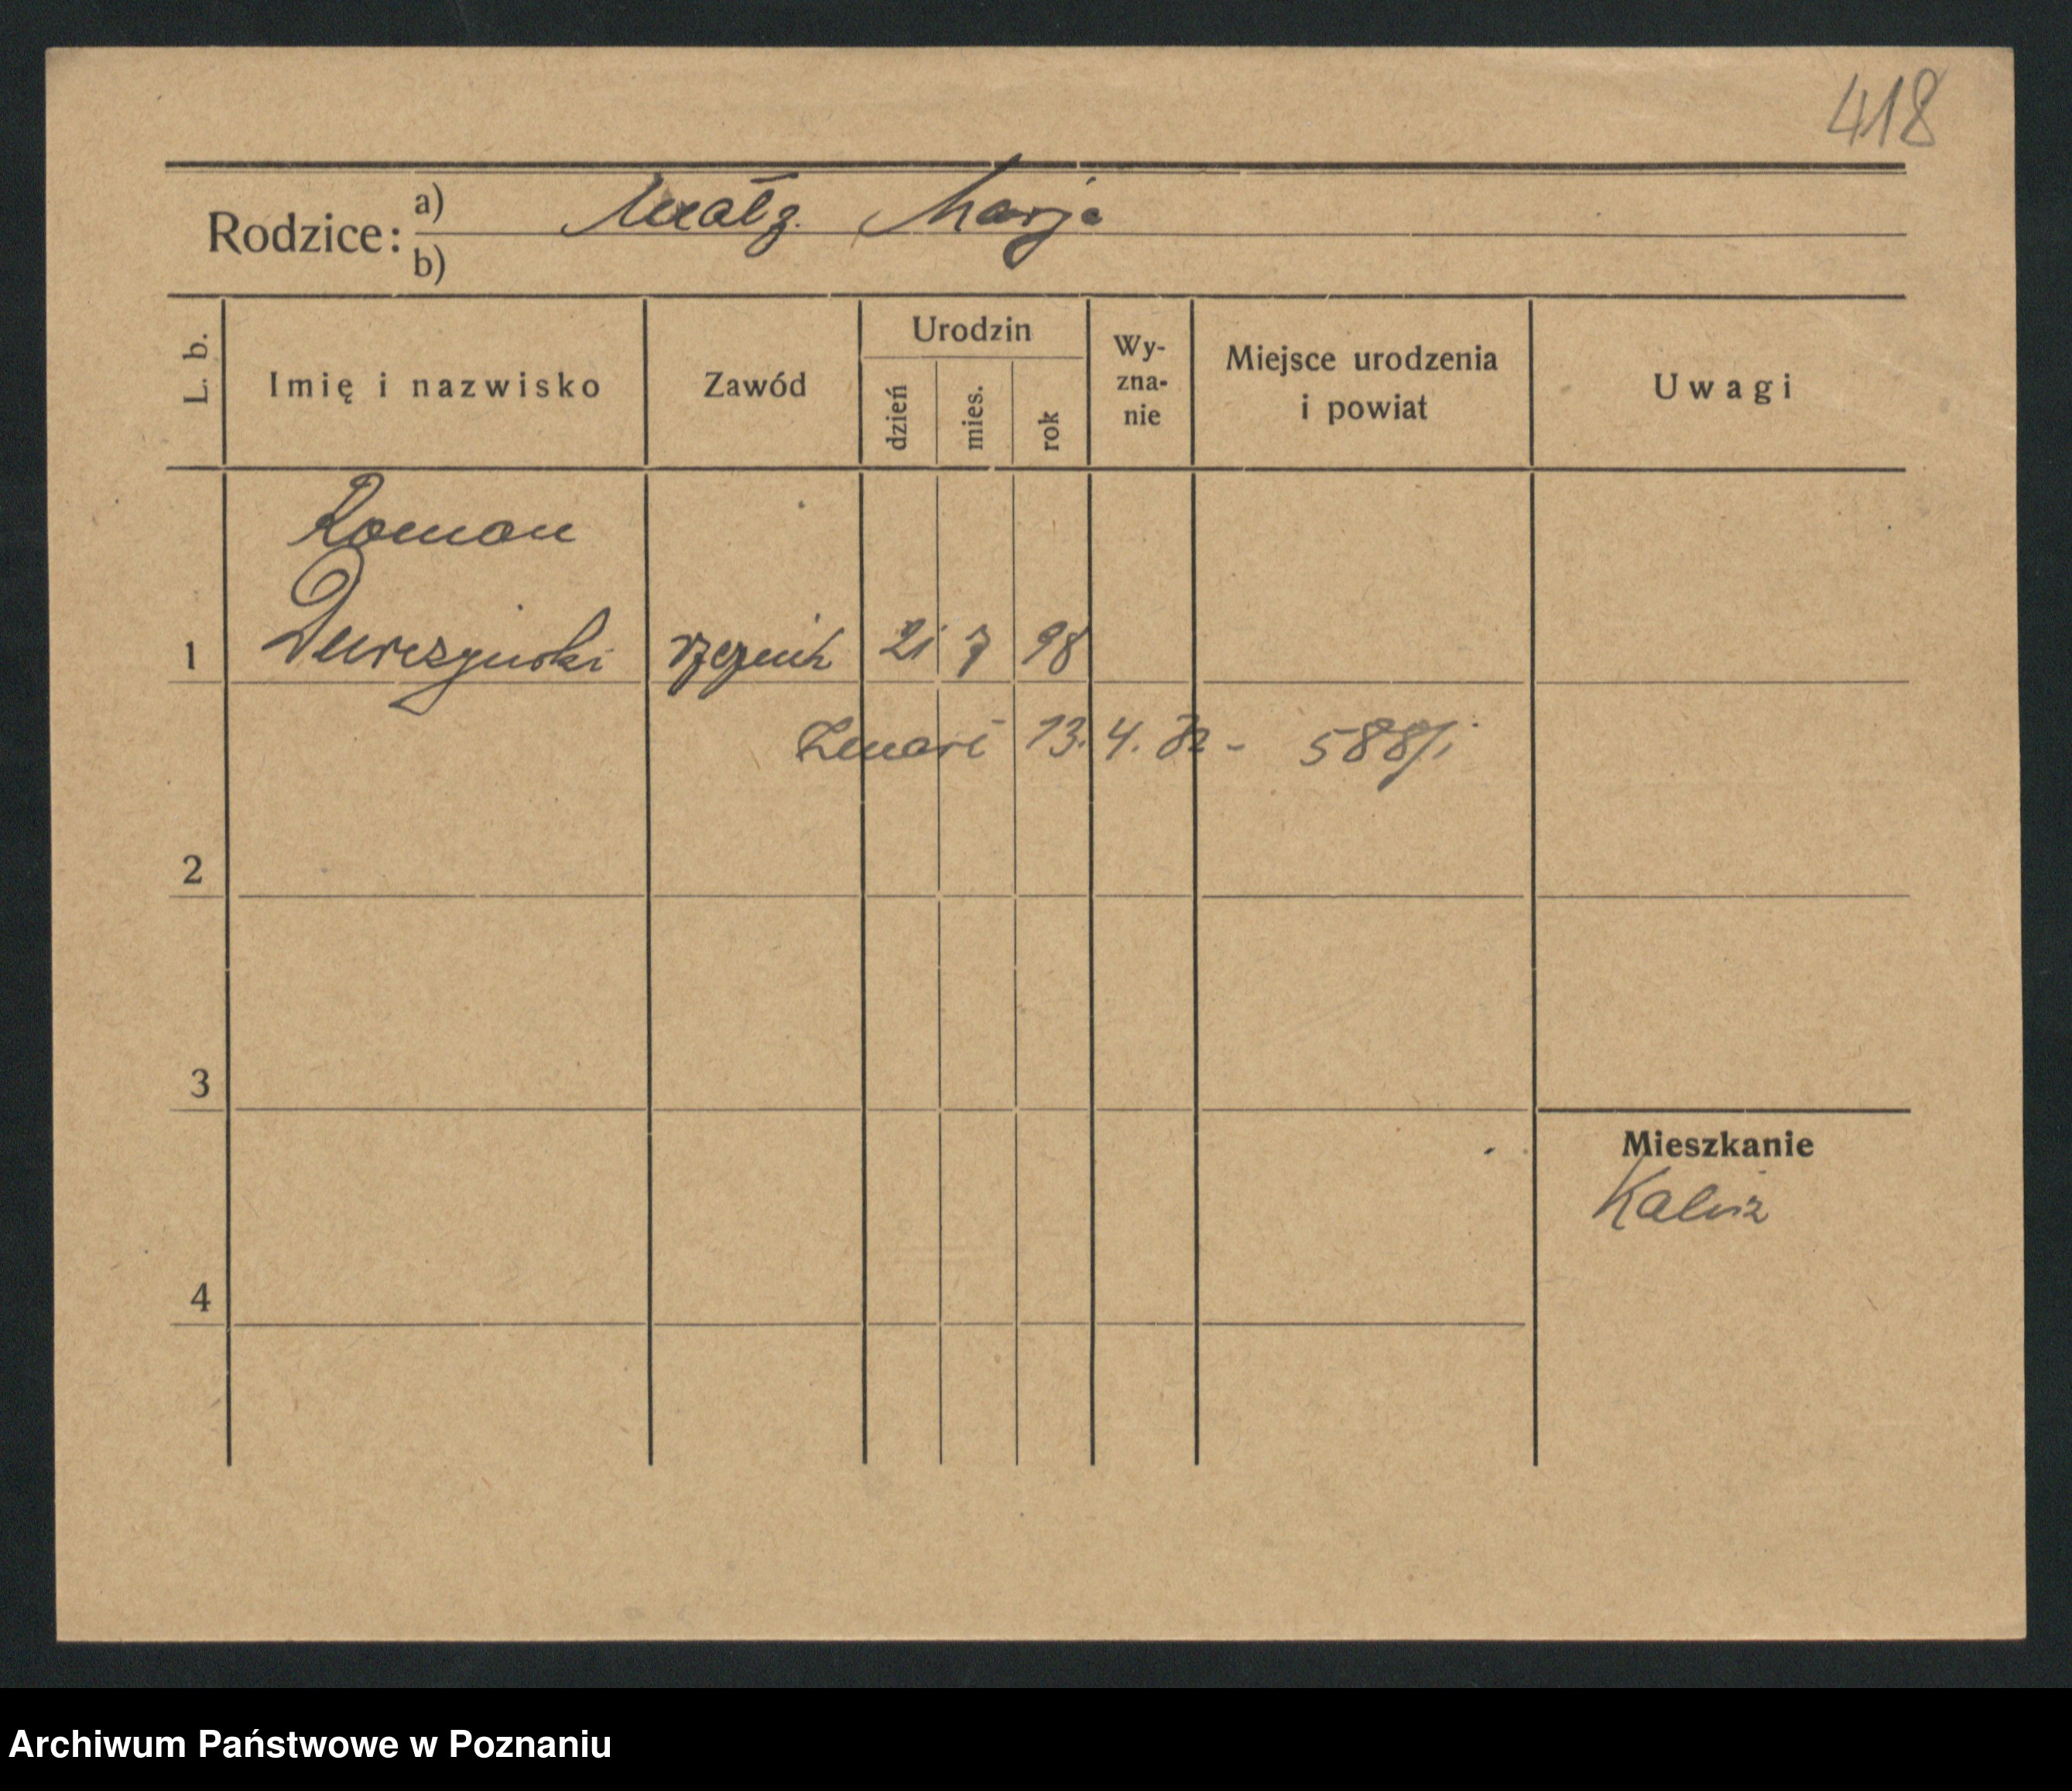 418
Rodzice: a) Małż. Marja
b)
L. b.
Imię i nazwisko
Zawód
Urodzin
dzień
mies.
rok
Wy-
zna-
nie
Miejsce urodzenia
i powiat
Uwagi
Roman
1 rzeźnik 21 7 98
Zmarł 13.4.32 - 588/i
2
3
Mieszkanie
Kalisz
4
Archiwum Państwowe w Poznaniu